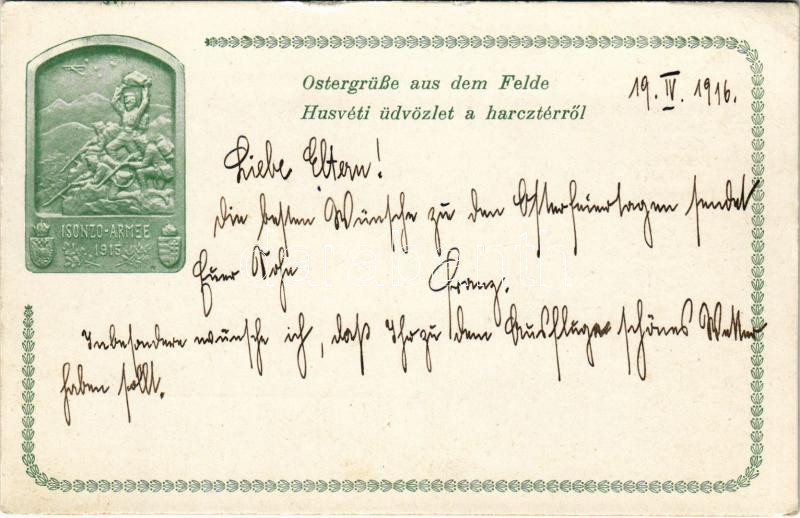 Ostergrüße aus dem Felde
Husvéti üdvözlet a harcztérről
19. IV. 1916.
ISONZO-ARMEE
1915
Liebe Eltern!
Die besten Wünsche zu den Osterfeiertagen sendet
Euer Sohn Franz.
Insbesondere wünsche ich, daß Ihr zu dem Ausfluge schönes Wetter
haben sollt.